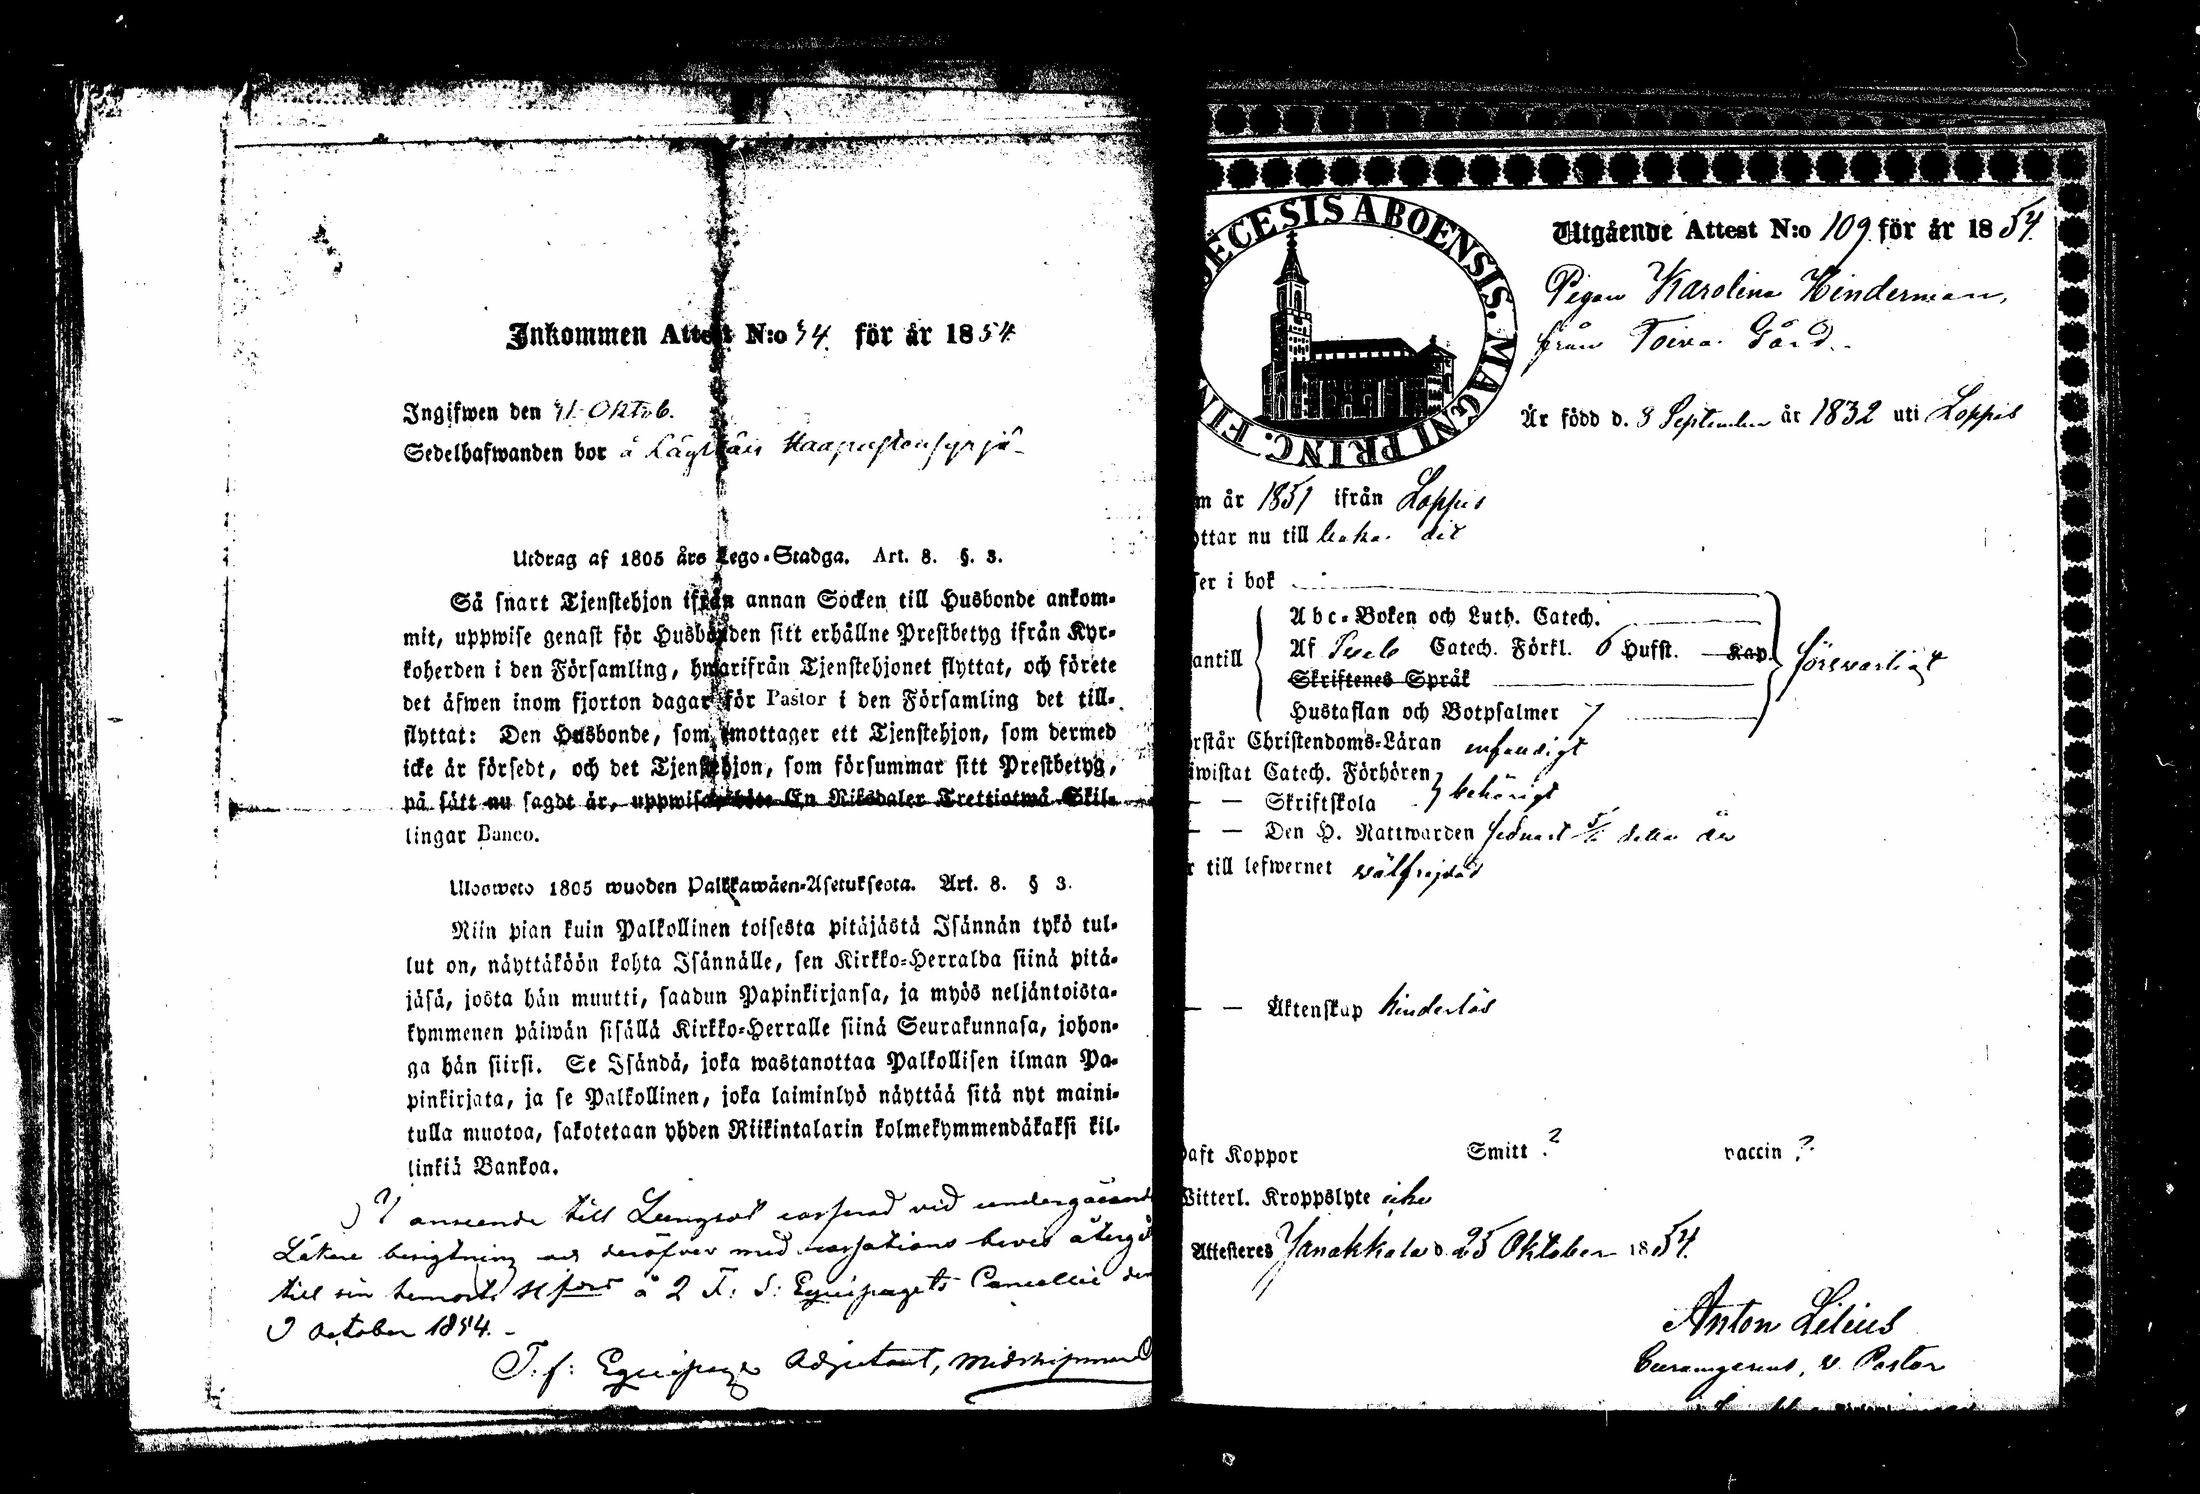 Inkommen Attest N:o 34. för år 1854.
Ingifwen den 31 Oktob.
Sedelhafwanden bor å
Utdrag af 1805 års Lego-Stadga. Art. 8. §. 3.
Så snart Tjenstehjon ifrån annan Socken till Husbonde ankom-
mit, uppwise genast för Husbonden sitt erhållne Prestbetyg ifrån Kyr-
koherden i den Församling, hwarifrån Tjenstehjonet flyttat, och förete
det äfwen inom fjorton dagar för Pastor i den Församling det till-
flyttat: Den Husbonde, som emottager ett Tjenstehjon, som dermed
icke är försedt, och det Tjenstehjon, som försummar sitt Prestbetyg,
på sätt nu sagdt är, uppwisa, böte En Riksdaler Trettiotwå Skil-
lingar Banco.
Ulosweto 1805 wuoden Palkkawäen-Asetuksesta. Art. 8. § 3.
Niin pian kuin Palkollinen toisesta pitäjästä Isännän tykö tul-
lut on, näyttäköön kohta Isännälle, sen Kirkko-Herralda siinä pitä-
jäsä, josta hän muutti, saadun Papinkirjansa, ja myös neljäntoista-
kymmenen päiwän sisällä Kirkko-Herralle siinä Seurakunnasa, johon-
ga hän siirsi. Se Isändä, joka wastanottaa Palkollisen ilman Pa-
pinkirjata, ja se Palkollinen, joka laiminlyö näyttää sitä nyt maini-
tulla muotoa, sakotetaan yhden Riikintalarin kolmekymmendäkaksi kil-
linkiä Bankoa.
anseende till Lungsot casserad vid undergående
Läkare besigtning och deröfver med cassations bevis återgå
till sin hemort å 2 F: S: Equipagets Cancellie den
9 October 1854. -
T. f: Equipage Adjutant, Midshipman
ECESIS ABOENSIS. MAGNI PRINC. FIN
Utgående Attest N:o 109. för år 1854.
Pigan Karolina Hinderman,
från Toiva Gård.
Är född d. 8 September år 1832 uti Loppis
m år 1851 ifrån Loppis
ttar nu till baka dit
ser i bok
Abc-Boken och Luth. Catech.
antill Af Catech. Förkl. 6 Husst. Kap. försvarligt
Skriftenes Språk
Hustaflan och Botpsalmer 7
rstår Christendoms-Läran enfaldigt
iwistat Catech. Förhören
— — Skriftskola behörigt
— — Den H. Nattwarden sednast detta år
r till lefwernet välfrejdad
— — Äktenskap hinderlös
aft Koppor Smitt ? vaccin ?
Witterl. Kroppslyte icke
Attesteres Janakkala d. 25 Oktober 1854.
Anton Lilius
v. Pastor